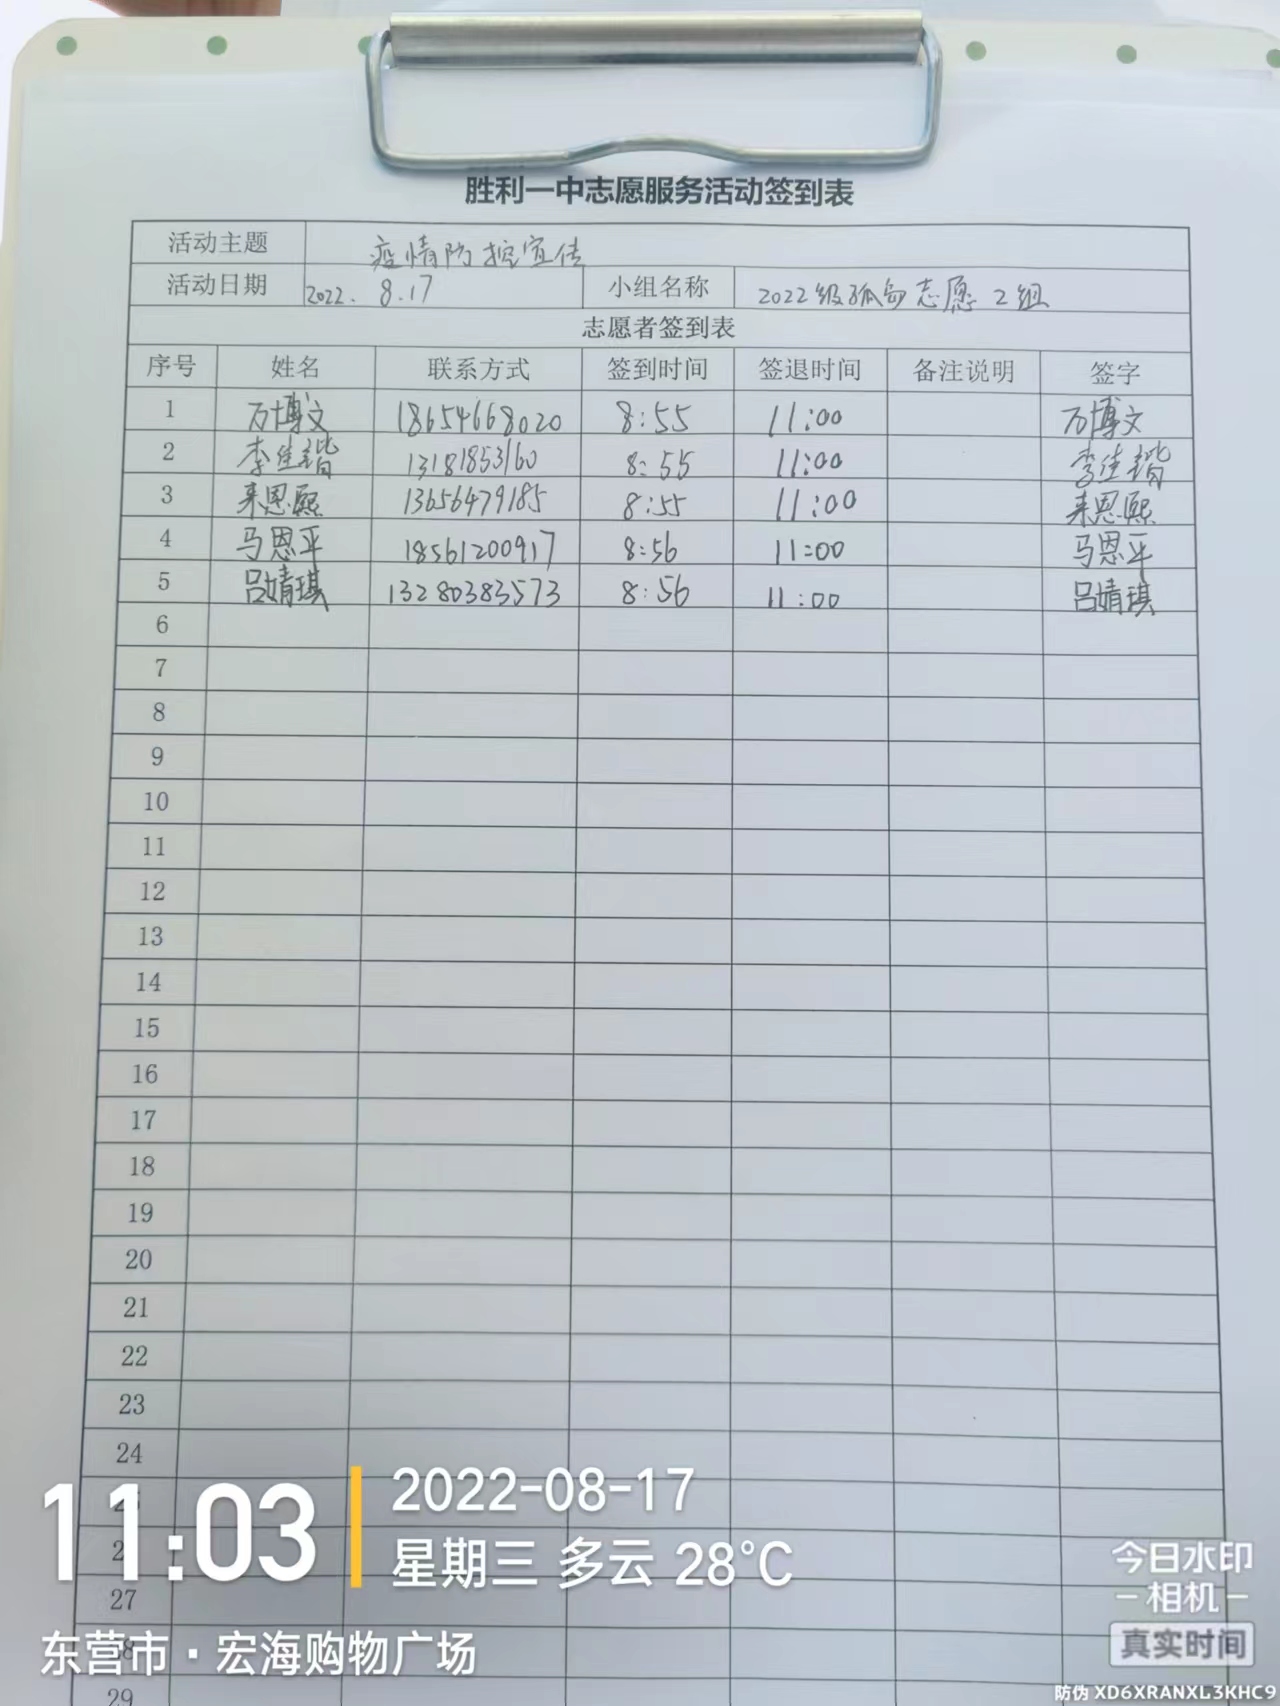 胜利一中志愿服务活动签到表
活动主题 疫情防控宣传
活动日期 2022.8.17 小组名称 2022级孤岛志愿2组
志愿者签到表
序号 姓名 联系方式 签到时间 签退时间 备注说明 签字
1 万博文 18654668020 8:55 11:00 万博文
2 李佳锴 13181853160 8:55 11:00 李佳锴
3 来恩熙 13656479185 8:55 11:00 来恩熙
4 马恩平 18561200917 8:56 11:00 马恩平
5 吕婧琪 13280383573 8:56 11:00 吕婧琪
6
7
8
9
10
11
12
13
14
15
16
17
18
19
20
21
22
23
24
27
29
11:03
2022-08-17
星期三 多云 28°C
东营市·宏海购物广场
今日水印
-相机-
真实时间
防伪 XD6XRANXL3KHC9